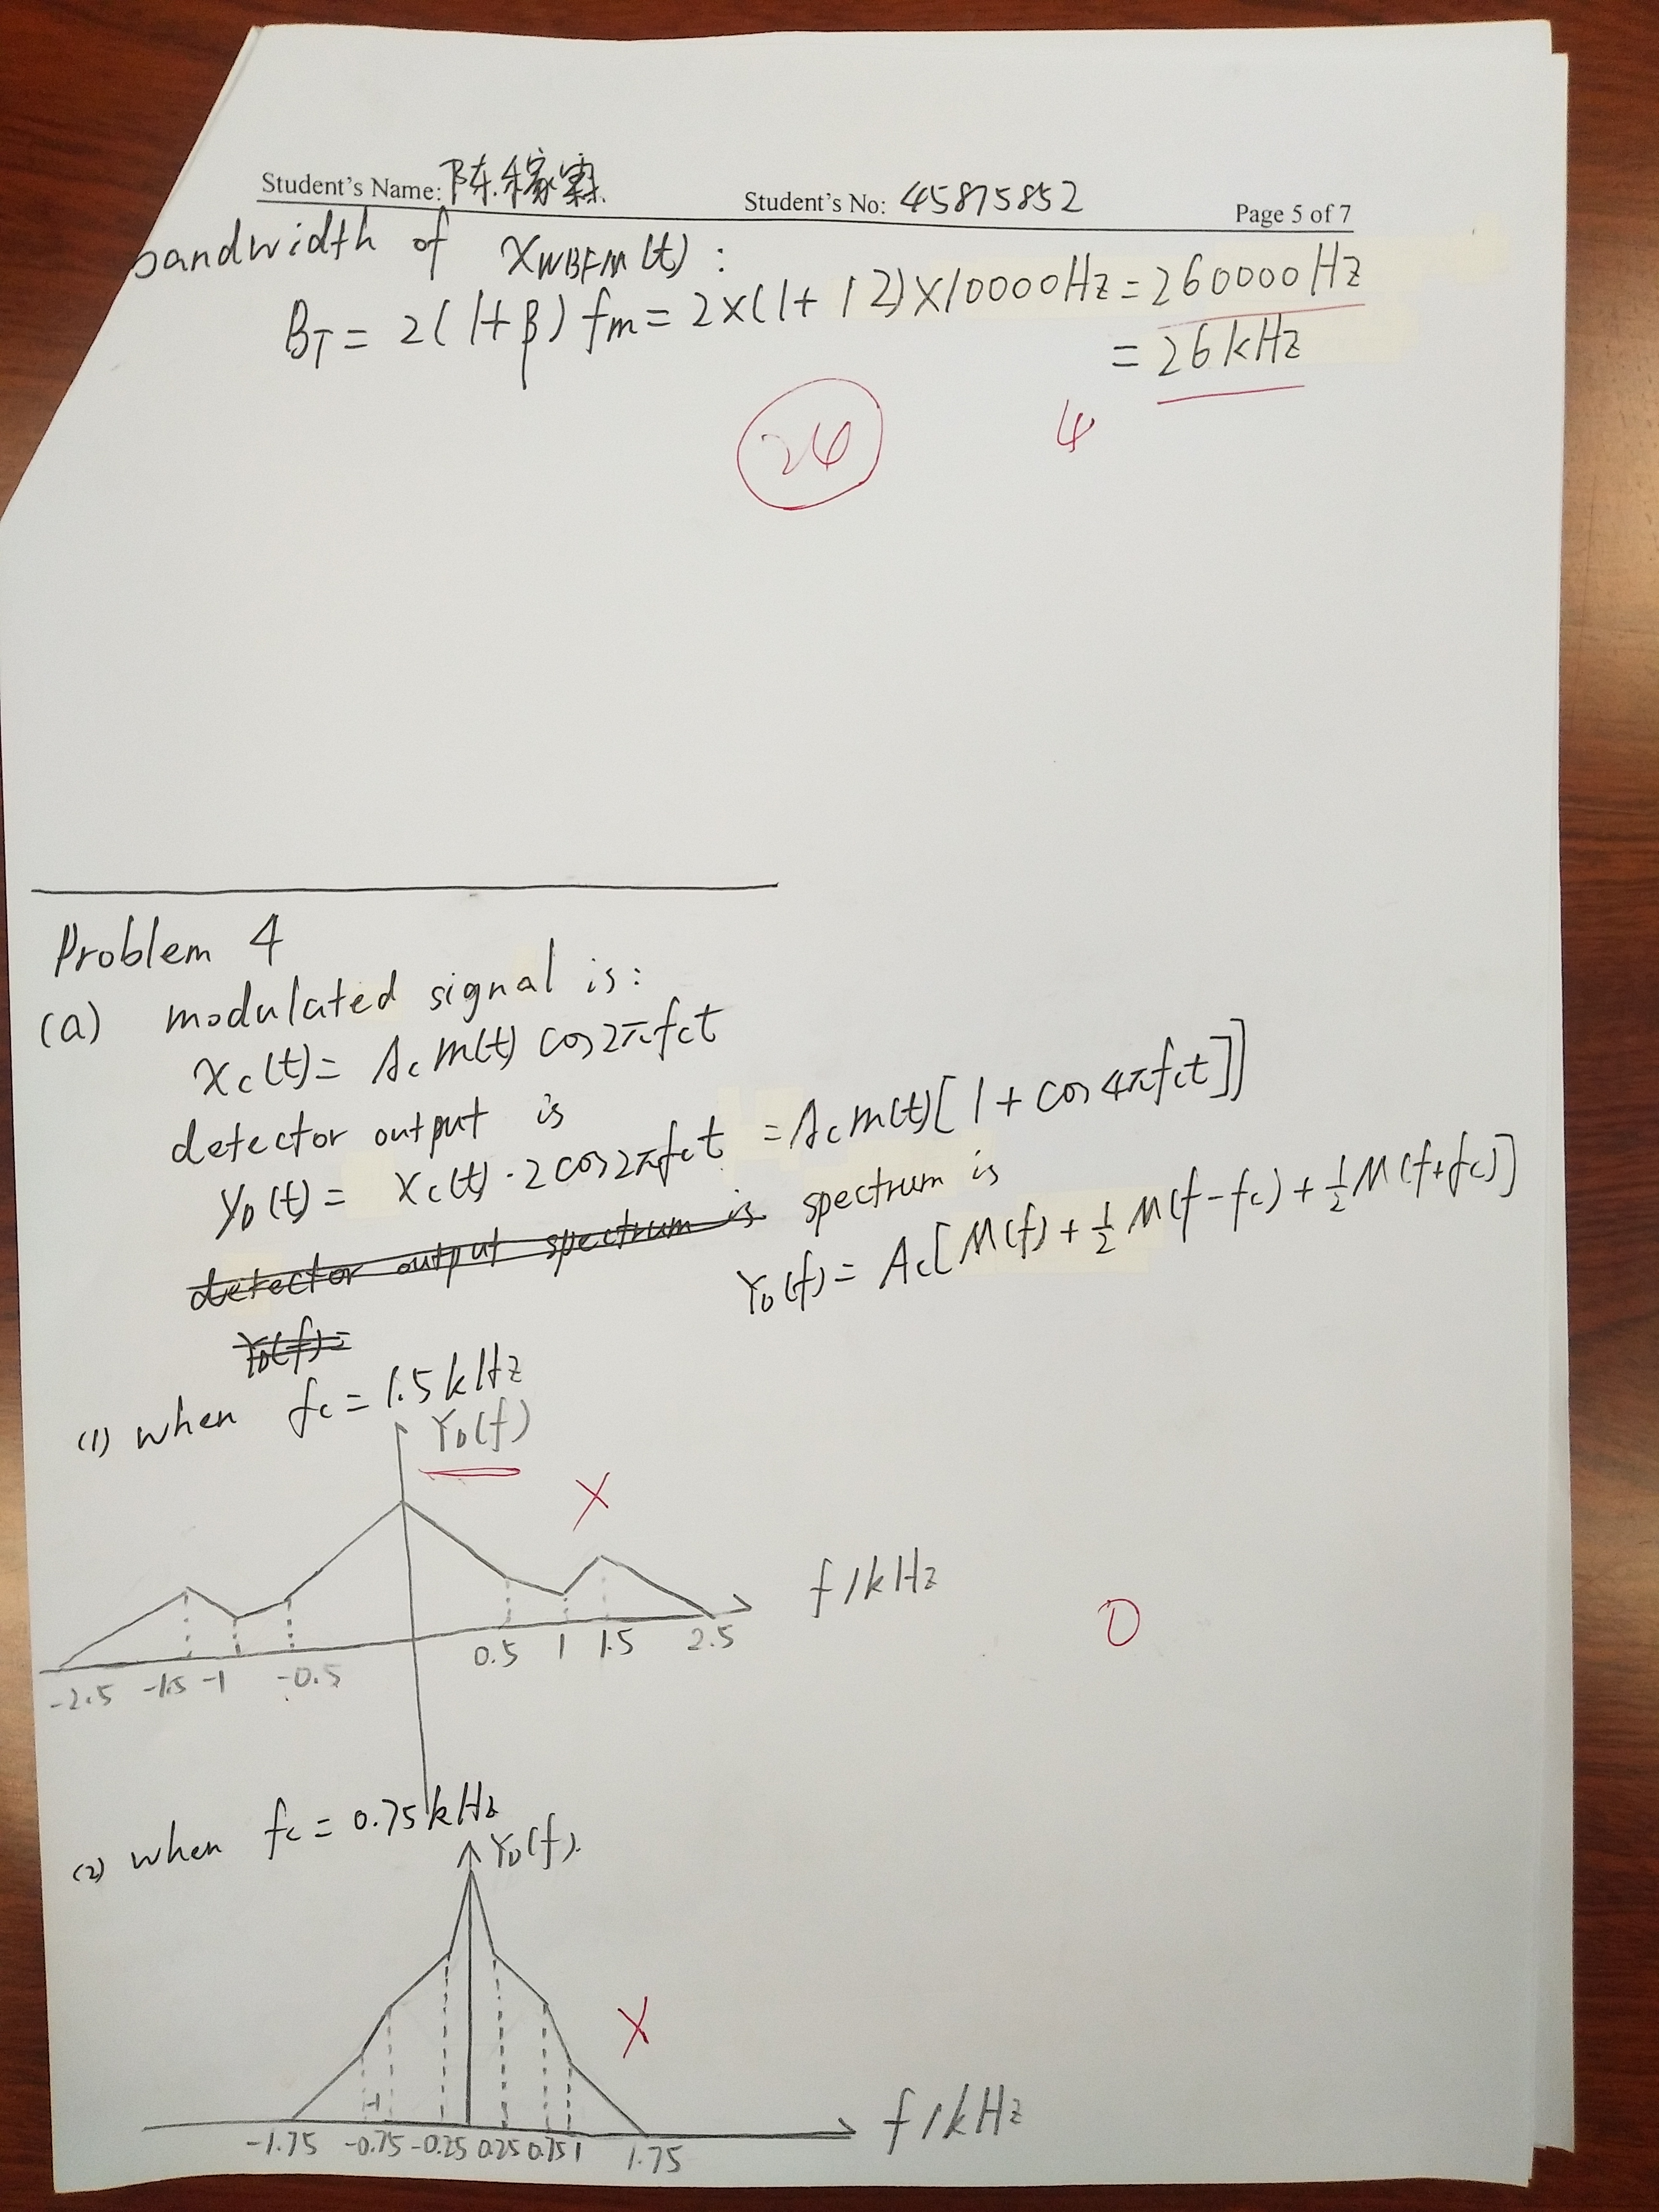 Student's Name: 陈稼霖 Student's No: 45875852 Page 5 of 7
bandwidth of XWBFM(t):
BT = 2(1+β) fm = 2×(1+12)×10000Hz = 260000Hz
= 26kHz
26 4
Problem 4
(a) modulated signal is:
xc(t) = Ac m(t) cos2πfct
detector output is
yD(t) = xc(t)·2cos2πfct = Ac m(t)[1+cos4πfct]]
detector output spectrum is spectrum is
YD(f) = YD(f) = Ac[M(f)+½M(f-fc)+½M(f+fc)]
(1) when fc = 1.5kHz
YD(f)
X
f/kHz
0
-2.5 -1.5 -1 -0.5 0.5 1 1.5 2.5
(2) when fc = 0.75kHz
YD(f).
X
-1
-1.75 -0.75 -0.25 0.25 0.75 1 1.75 f/kHz